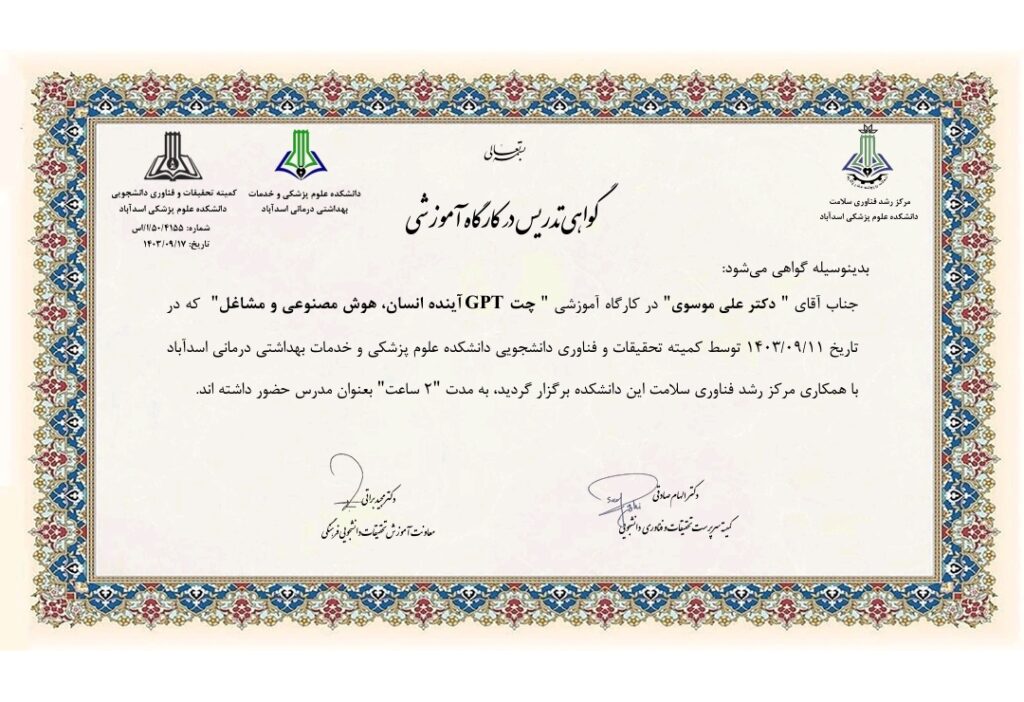 بسمه تعالی
مرکز رشد فناوری سلامت
دانشکده علوم پزشکی اسدآباد
دانشکده علوم پزشکی و خدمات
بهداشتی درمانی اسدآباد
کمیته تحقیقات و فناوری دانشجویی
دانشکده علوم پزشکی اسدآباد
شماره: ۴۱۵۵/۵۰/ا/اس
تاریخ: ۱۴۰۳/۰۹/۱۷
گواهی تدریس در کارگاه آموزشی
بدینوسیله گواهی می‌شود:
جناب آقای " دکتر علی موسوی" در کارگاه آموزشی " چت GPT آینده انسان، هوش مصنوعی و مشاغل" که در
تاریخ ۱۴۰۳/۰۹/۱۱ توسط کمیته تحقیقات و فناوری دانشجویی دانشکده علوم پزشکی و خدمات بهداشتی درمانی اسدآباد
با همکاری مرکز رشد فناوری سلامت این دانشکده برگزار گردید، به مدت "۲ ساعت" بعنوان مدرس حضور داشته اند.
دکتر الهام صادقی
کمیته سرپرست تحقیقات و فناوری دانشجویی
دکتر مجید براتی
معاونت آموزش تحقیقات دانشجویی فرهنگی